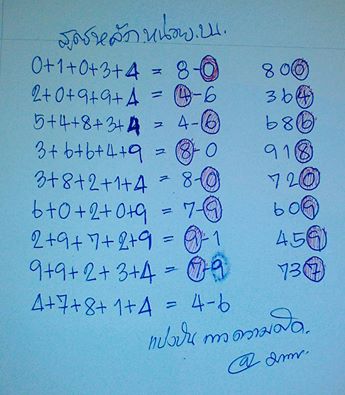 สูตรหลักหน่วย.บน.
0+1+0+3+4 = 8-0 800
2+0+9+9+4 = 4-6 364
5+4+8+3+4 = 4-6 686
3+6+6+4+9 = 8-0 918
3+8+2+1+4 = 8-0 720
6+0+2+0+9 = 7-9 609
2+9+7+2+9 = 9-1 459
9+9+2+3+4 = 7-9 737
4+7+8+1+4 = 4-6
แบ่งปัน ความคิด.